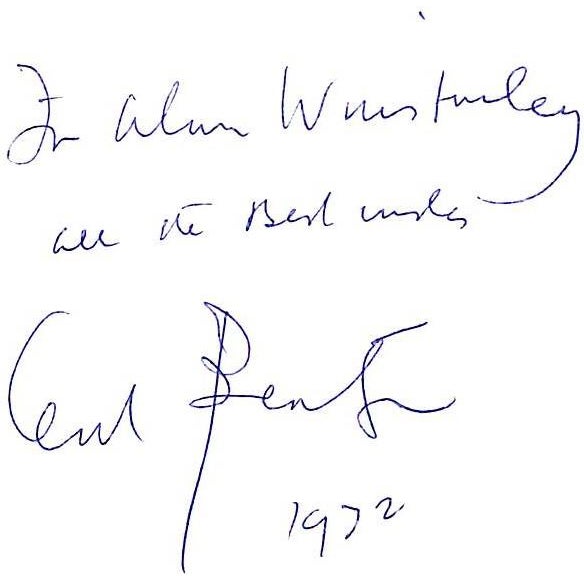 For Alan Winstanley
all the Best wishes
Cecil Beaton
1972